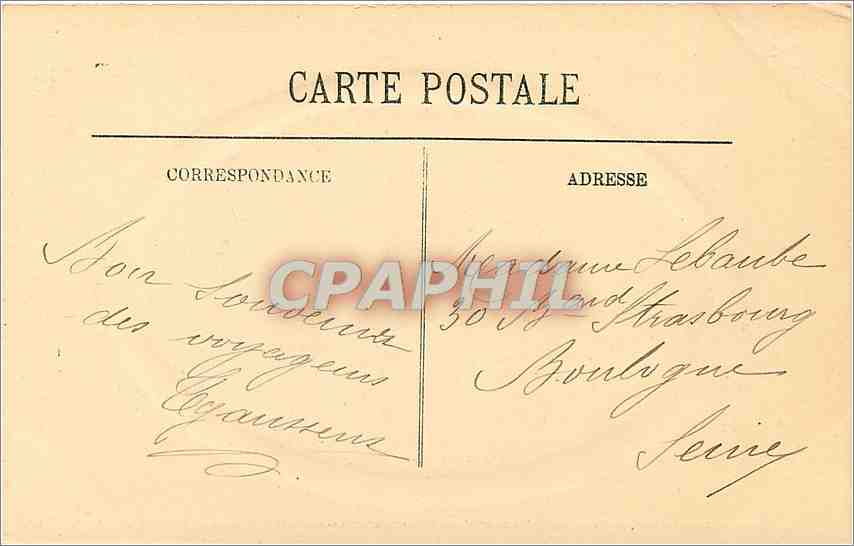 CARTE POSTALE
CORRESPONDANCE
Bon Souvenir
des voyageurs
ADRESSE
Madame Lebaube
30 Bard Strasbourg
Boulogne
Seine
CPAPHIL